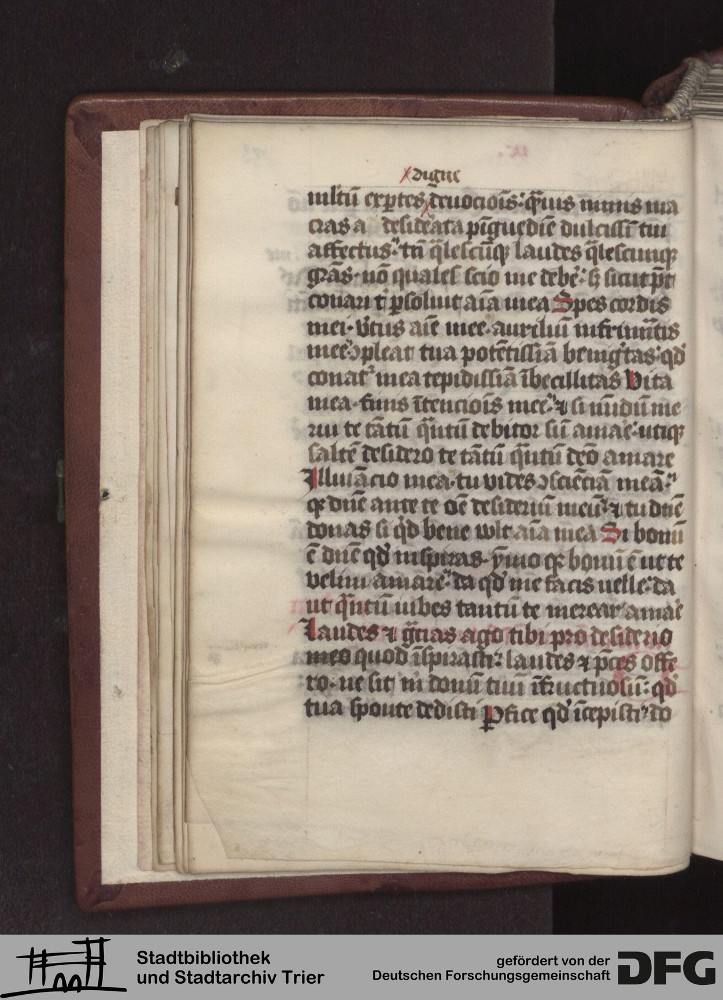 digne
multū exp̄tes deuociōis: qͣuis nimis ma
cras a desiderata pīguedīe dulcissī tui
affectus: tn̄ q̄lescūqꝫ laudes q̄lescūqꝫ
gr̄as. nō quales scio me debē: sꝫ sicut pt̄
conari t̄ ꝑsoluit aīa mea Spes cordis
mei. v̄tus aīe mee. auxiliū infirmitatis
mee: ꝯpleat tua potētissīa beniḡtas: qd̓
conat᷑ mea tepidissīa ībecillitas Vita
mea. finis ītenciōis mee: ⁊ si nūdū me
rui te tātū qͣntū debitor sū amāe: utiqꝫ
saltē desidero te tātū qͣntū dēo amare
Illuīacio mea. tu vides ꝯsciēciā meā:
qꝫ dn̄e ante te oē desideriū meū: ⁊ tu dn̄e
donas si qͥd bene wlt aīa mea Si bonū
ē dn̄e qd̓ inspiras. ymo qꝫ bonū ē ut te
velim amare: da qd̓ me facis uelle: da
ut qͣntū iubes tantū te merear amāe
Laudes ⁊ gr̄as ago tibi pro desiderio
meo quod īspirasti: laudes ⁊ p̄ces offe
ro. ne sit m̄ donū tuū īfructuosū: qd̓
tua sponte dedisti Ꝑfice qd̓ īcepisti: do
Stadtbibliothek
und Stadtarchiv Trier
gefördert von der
Deutschen Forschungsgemeinschaft
DFG